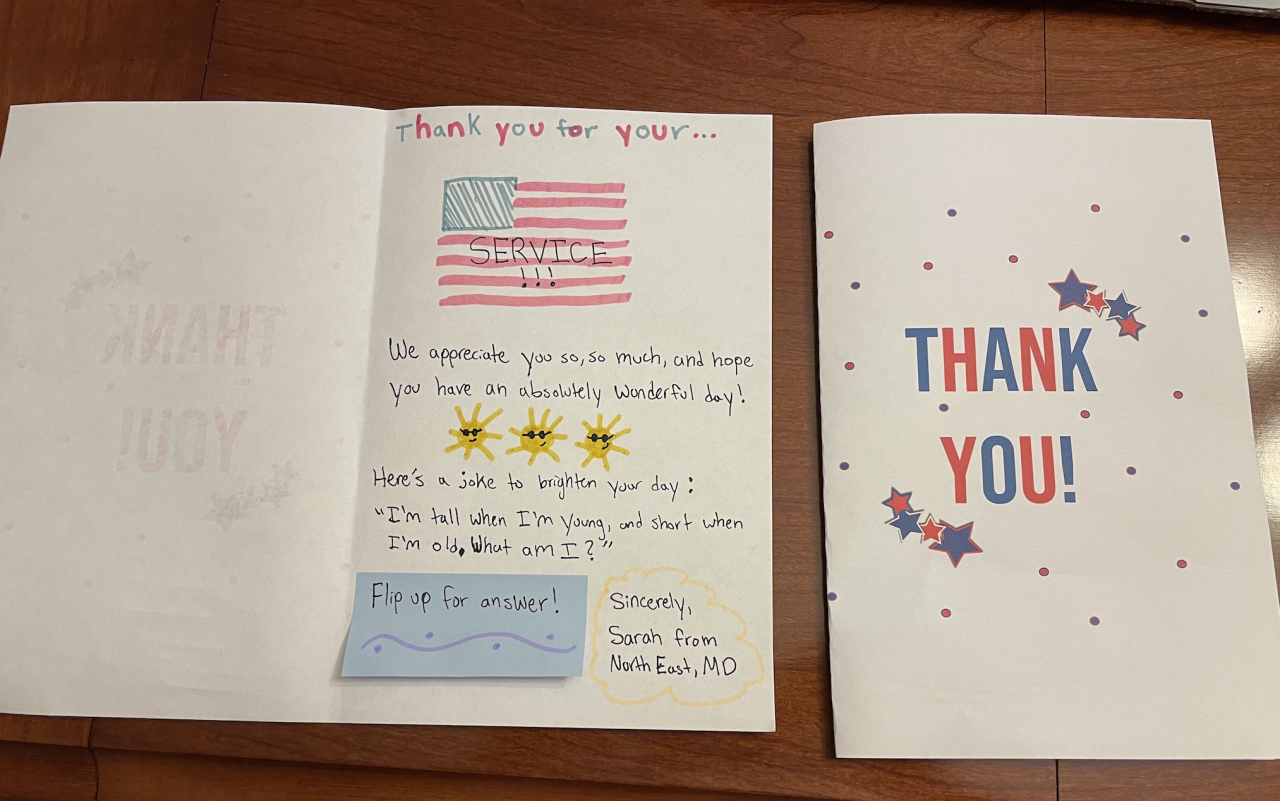 Thank you for your...
SERVICE
!!!
We appreciate you so, so much, and hope
you have an absolutely wonderful day!
Here's a joke to brighten your day:
"I'm tall when I'm young, and short when
I'm old. What am I?"
Flip up for answer!
Sincerely,
Sarah from
North East, MD
THANK
YOU!
THANK
YOU!